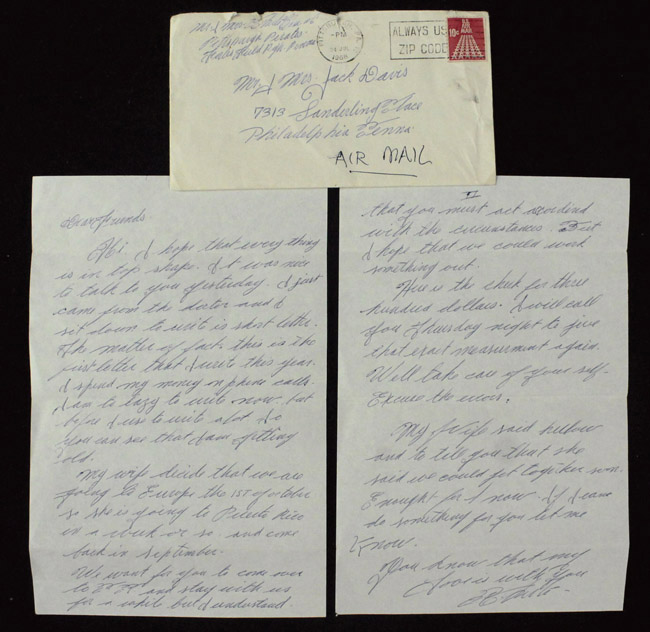 Pittsburgh Pirates
-PM
1968
ALWAYS USE
ZIP CODE
10c
Mr & Mrs Jack Davis
7313 Sanderling Place
Philadelphia Penna
AIR MAIL
Dear friends
Hi, I hope that every thing
is in top shape. It was nice
to talk to you yesterday. I just
came from the doctor and I
sit down to write is short letter.
The matter of fact this is the
first letter that I write this year.
I spend my money in phone calls.
I am to lazy to write now, but
before I use to write a lot. So
you can see that I am getting
old.
My wife decide that we are
going to Europe the 1ST of october
so she is going to Puerto Rico
in a week or so and come
back in September.
We want for you to come over
to and stay with us
for a while but I understand
II
that you must act acordind
with the circunstances. But
I hope that we could work
something out.
Here is the chek for three
hundred dollars. I will call
you Thursday night to give
that exact measurment again.
Well take care of your self-
Excuse the errors.
My Wife said hellow
and to tell you that she
said we could get together soon.
Enought for now. If I can
do something for you let me
Know.
You know that my
love is with you